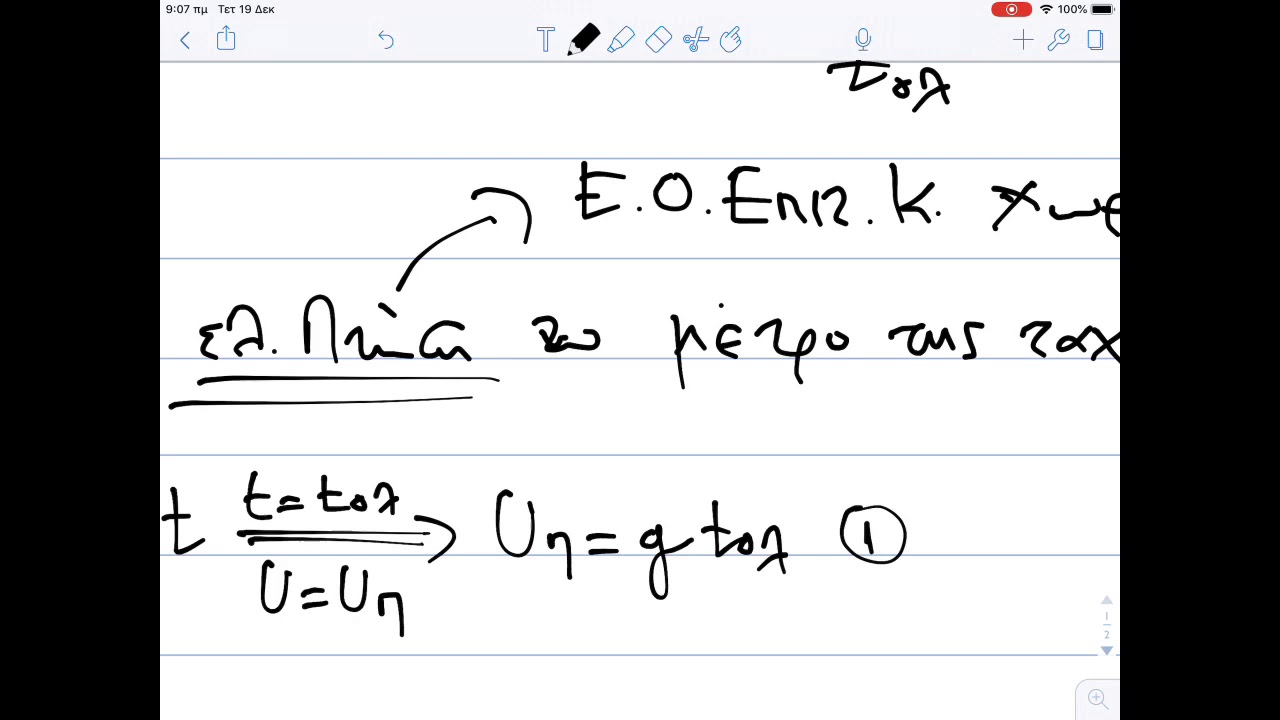 9:07 πμ Τετ 19 Δεκ 100%
τολ
Ε.Ο.Επιτ.Κ. χωρ
ελ. Πτώση το μέτρο της ταχ
t t=tολ U=Uη Uη=g tολ 1
1
2